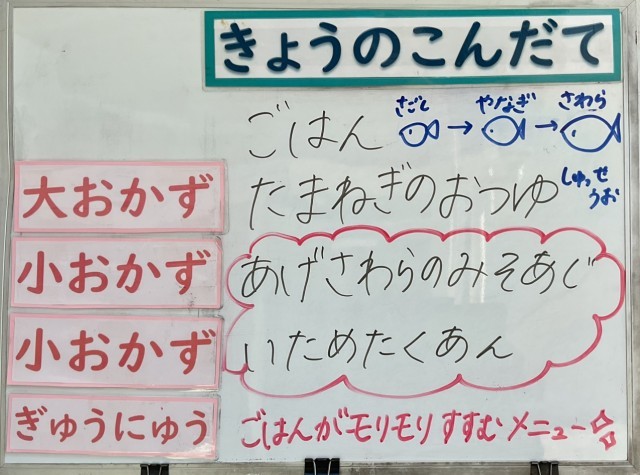 きょうのこんだて
ごはん
さごし → やなぎ → さわら
しゅっせうお
大おかず たまねぎのおつゆ
小おかず あげさわらのみそあじ
小おかず いためたくあん
ぎゅうにゅう ごはんがモリモリすすむメニュー